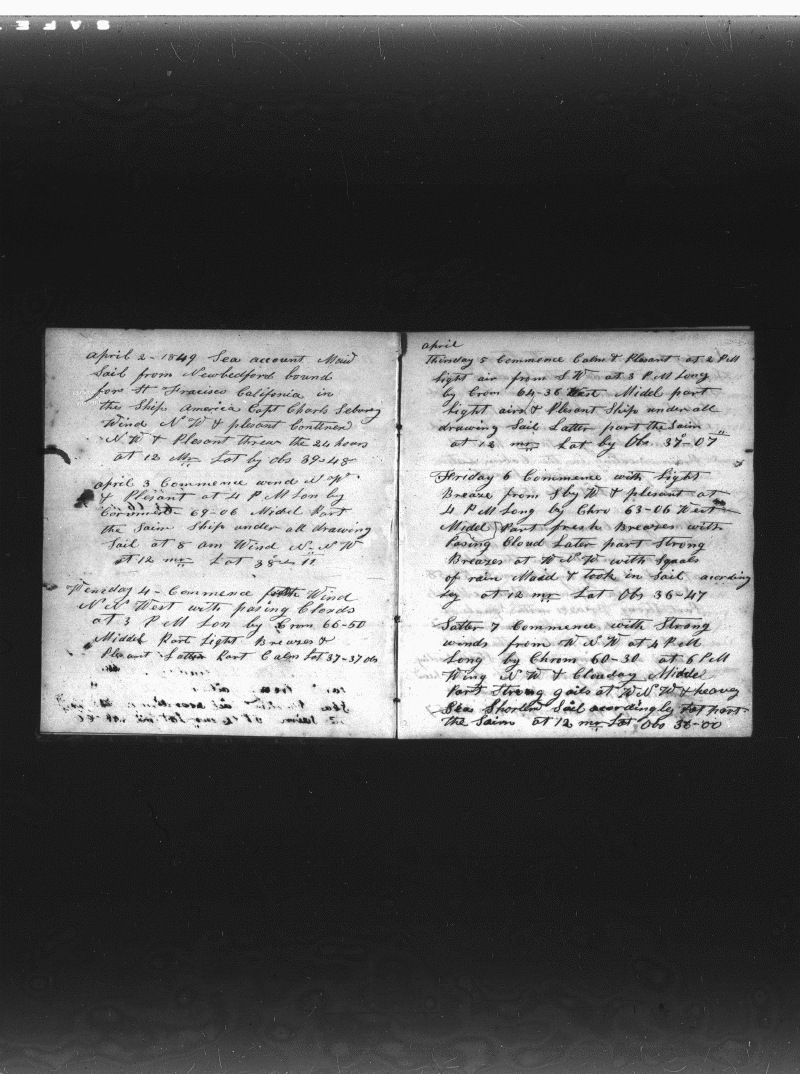 SAFE
april 2 - 1849 Sea account Maid
Sail from Newbedford bound
for St Fracisco Califonia in
the Ship America Capt Charls Seabury
Wind N W & pleasant Conttened
N W & Plesant threw the 24 hours
at 12 Mr Lat by obs 39 - 48
april 3 Commence wind N W
& Plesent at 4 P M Lon by
69-06 Midel Part
the Saim Ship under all drawing
Sail at 8 am Wind N. N W
at 12 mr Lat 38 - 11
Wensday 4 - Commence Wind
N N West with pasing Clouds
at 3 P M Lon by Crom 66-50
Middel Part Light Breazes &
Plesant Latter Part Calm Lat 37-37 obs
april
Thirsday 5 Commence Calm & Plesant at 2 P M
light air from S W at 3 P M Long
by Crom 64-36 West Midel part
Light airs & Plesent Ship under all
drawing Sail Latter part the Saim
at 12 mr Lat by Obs 37-07
Friday 6 Commence with Light
Breaze from S by W & plesent at
4 P M Long by Chro 63-06 West
Middel Part fresh Breazes with
Pasing Cloud Later part Strong
Breazes at W N W with Sqaals
of rain Maid & took in Sail acording
ley at 12 mr Lat Obs 36-47
Satter 7 Commence with Strong
winds from W N W at 4 P M
Long by Chrom 60-30 at 6 P M
Wing N W & Clouday Middel
Part Strong gails at W N W & heavey
Sea Shorten Sail acordingley Lat part
the Saim at 12 mr Lat Obs 36-00